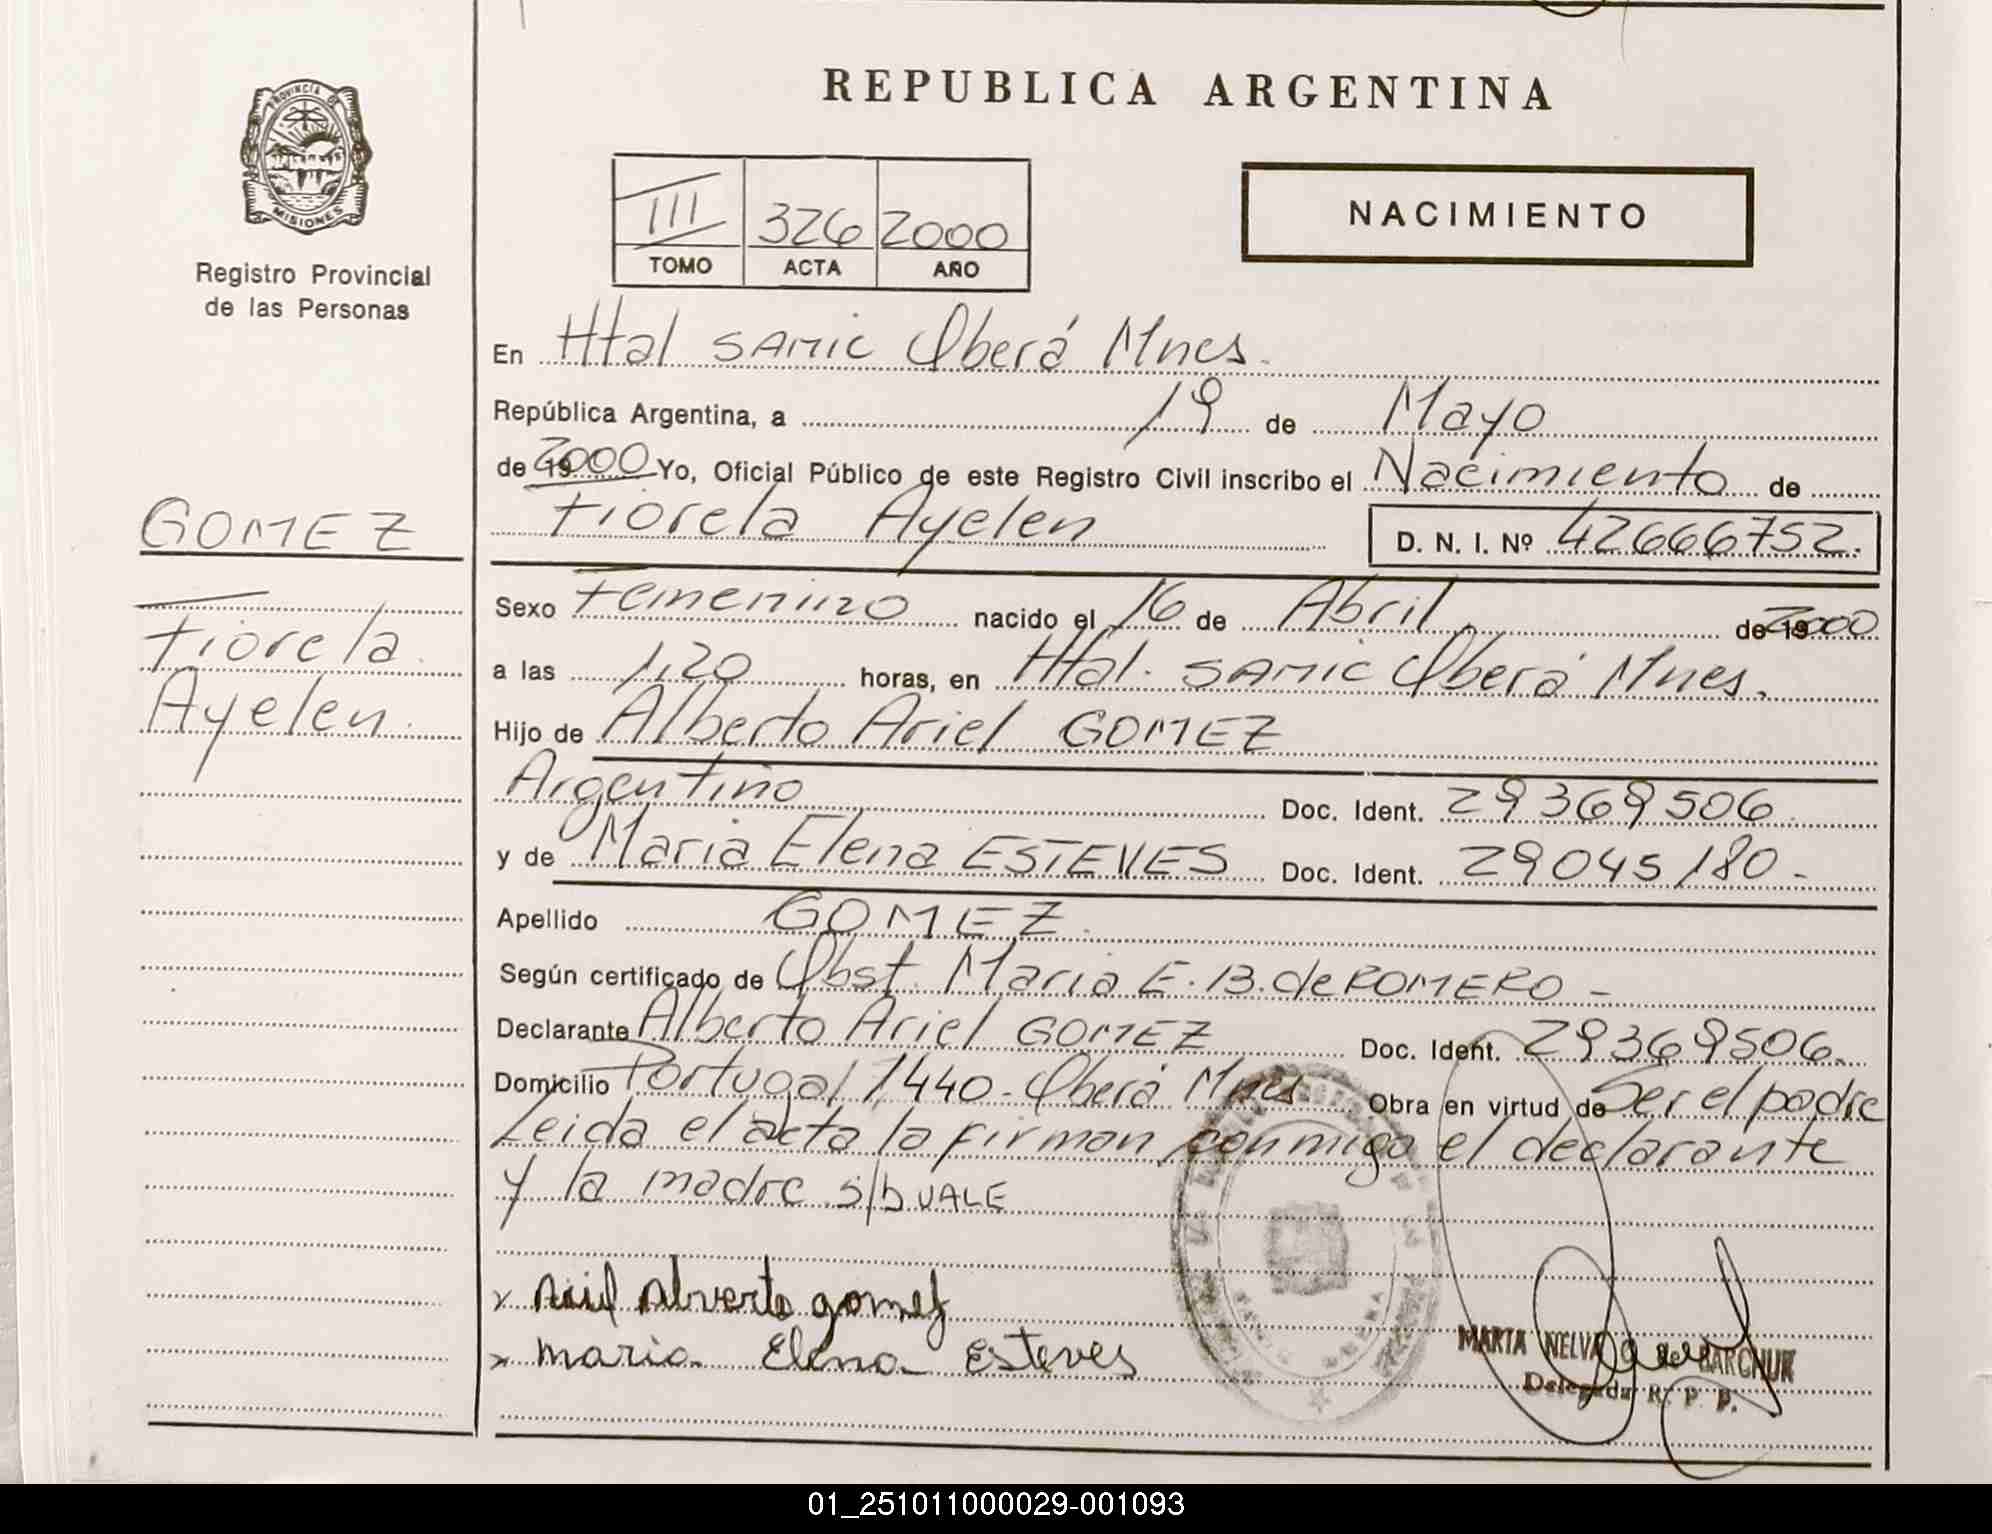 REPUBLICA ARGENTINA
PROVINCIA DE
MISIONES
Registro Provincial
de las Personas
III 326 2000
TOMO ACTA AÑO
NACIMIENTO
En Htal SAMIC Oberá Mnes.
República Argentina, a 19 de Mayo
de 19 2000 Yo, Oficial Público de este Registro Civil inscribo el Nacimiento de
Fiorela Ayelen D. N. I. Nº 42666752.
GOMEZ
Fiorela
Ayelen.
Sexo Femenino nacido el 16 de Abril de 19 2000
a las 1,20 horas, en Htal. SAMIC Oberá Mnes.
Hijo de Alberto Ariel GOMEZ
Argentino Doc. Ident. 29369506
y de Maria Elena ESTEVES Doc. Ident. 29045180-
Apellido GOMEZ.
Según certificado de Obst. Maria E. B. de ROMERO -
Declarante Alberto Ariel GOMEZ Doc. Ident. 29369506.
Domicilio Portugal 1440- Oberá Mnes Obra en virtud de Ser el padre
Leida el acta la firman conmigo el declarante
y la madre. s/b VALE
x Ariel Alverto gomez
x maria Elena Esteves
MARTA NELVA de BARCHUK
Delegada R. P. P.
01_251011000029-001093